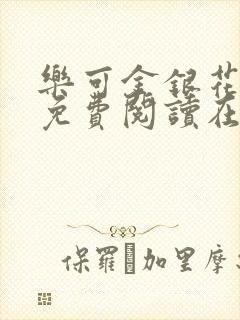 樂可金銀花
免費閱讀在
保羅·加里摩